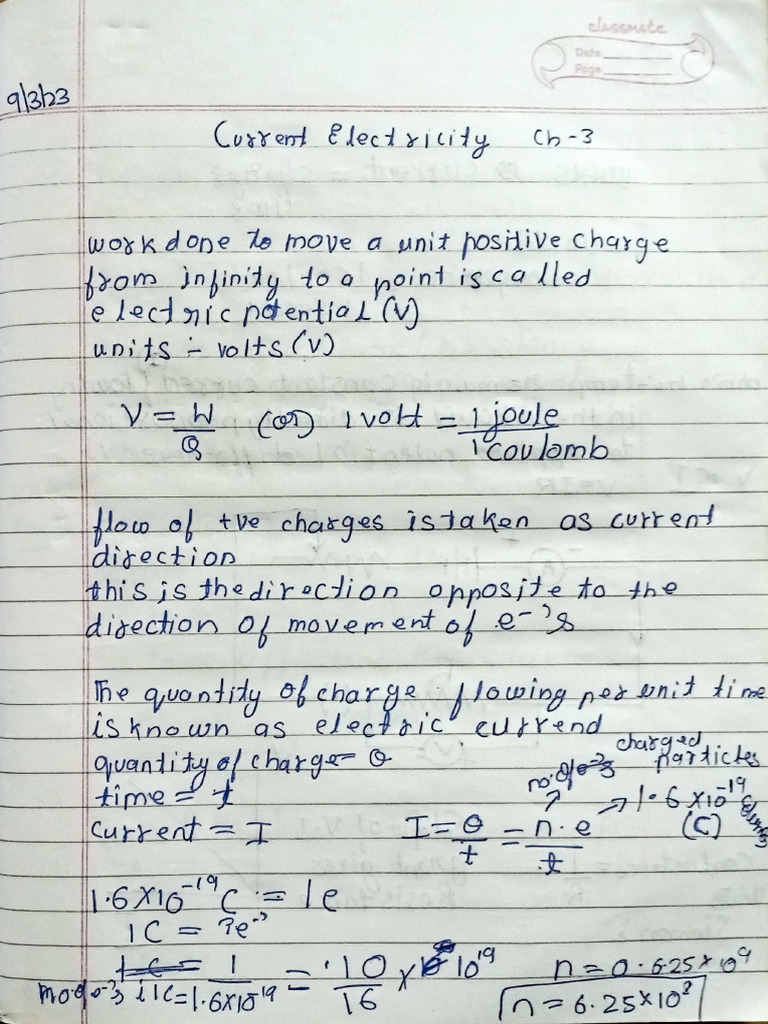 classmate
Date
Page
9/3/23
Current Electricity Ch-3
work done to move a unit positive charge
from infinity to a point is called
electric potential (V)
units :- volts (V)
V = W/Q (or) 1 volt = 1 joule/1 coulomb
flow of +ve charges is taken as current
direction
this is the direction opposite to the
direction of movement of e-'s
The quantity of charge flowing per unit time
is known as electric current
quantity of charge = Q
time = t
current = I
no. of charged particles
I = Q/t = n.e/t → 1.6 × 10^-19 (C)
1.6 × 10^-19 C = 1e
1C = ?e-'s
no. of e-'s in 1C = 1/1.6×10^-19 = 10/16 × 10^19
n = 0.625 × 10^9
n = 6.25 × 10^8